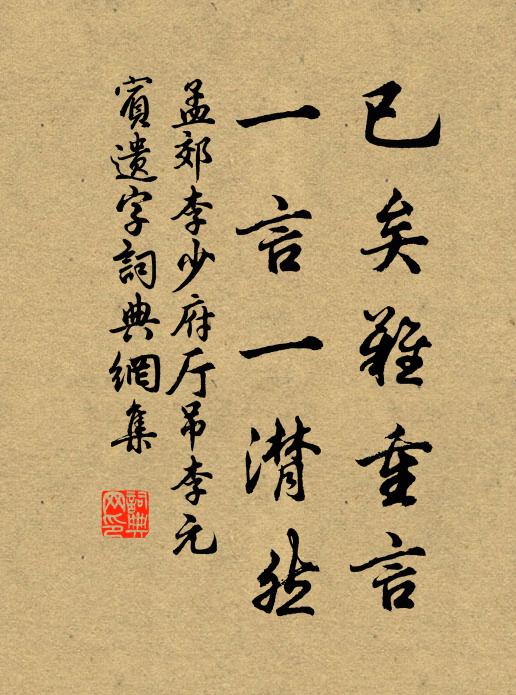 已矣難重言
一言一潸然
孟郊李少府厅吊李元
賓遗字詞典網集
詞典網印